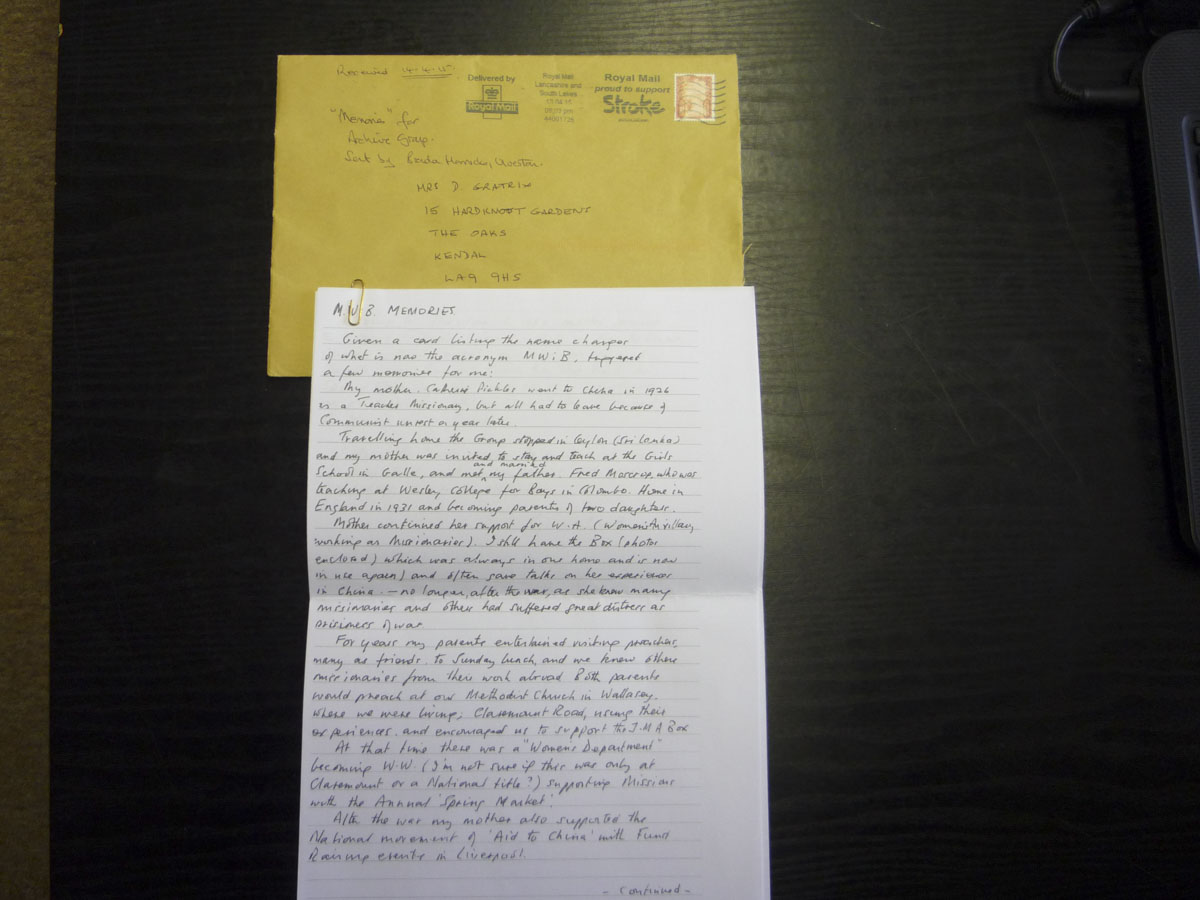 Received 14.4.15.
Delivered by
Royal Mail
Royal Mail
Lancashire and
South Lakes
Royal Mail
proud to support
Stroke
"Memories" for
Archive Group.
Sent by
MRS D. GRATRIX
15 HARDKNOTT GARDENS
THE OAKS
KENDAL
LA9 9HS
M.W.B. MEMORIES
Given a card listing the name changes
of what is now the acronym MWiB, triggered
a few memories for me:
My mother, Pickles went to China in 1926
as a Teacher Missionary, but all had to leave because of
Communist unrest a year later.
Travelling home the Group stopped in Ceylon (Sri Lanka)
and my mother was invited to stay and teach at the Girls
School in Galle, and met and married my father. Fred who was
teaching at Wesley College for Boys in Colombo. Home in
England in 1931 and becoming parents of two daughters.
Mother continued her support for W.A. (Women's Auxillary
working as Missionaries). I still have the Box (photos
enclosed) which was always in our home and is now
in use again) and often gave talks on her experiences
in China. – no longer, after the war, as she knew many
missionaries and others had suffered great distress as
prisoners of war
For years my parents entertained visiting preachers,
many as friends, to Sunday lunch, and we knew other
missionaries from their work abroad Both parents
would preach at our Methodist Church in Wallasey,
where we were living; Claremount Road, using their
experiences, and encouraged us to support the J.M.A Box
At that time there was a "Womens Department"
becoming W.W. (I'm not sure if this was only at
Claremount or a National title?) supporting Missions
with the Annual 'Spring Market'.
After the war my mother also supported the
National movement of 'Aid to China' with Fund
Raising events in Liverpool.
– Continued –